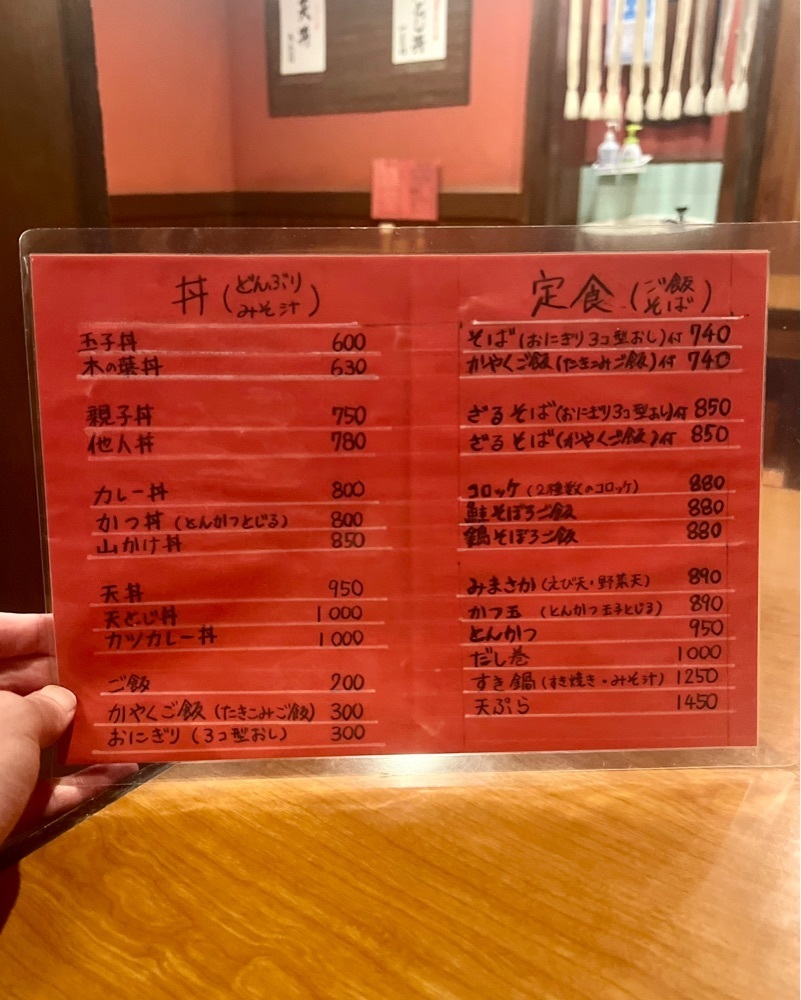 天丼
丼 (どんぶり
みそ汁)
玉子丼 600
木の葉丼 630
親子丼 750
他人丼 780
カレー丼 800
かつ丼 (とんかつとじる) 800
山かけ丼 850
天丼 950
天とじ丼 1000
カツカレー丼 1000
ご飯 200
かやくご飯 (たきこみご飯) 300
おにぎり (3コ型おし) 300
定食 (ご飯
そば)
そば (おにぎり3コ型おし)付 740
かやくご飯 (たきこみご飯)付 740
ざるそば (おにぎり3コ型おし)付 850
ざるそば (かやくご飯)付 850
コロッケ (2種類のコロッケ) 880
鮭そぼろご飯 880
鶏そぼろご飯 880
みまさか (えび天・野菜天) 890
かつ玉 (とんかつ玉子とじる) 890
とんかつ 950
だし巻 1000
すき鍋 (すき焼き・みそ汁) 1250
天ぷら 1450